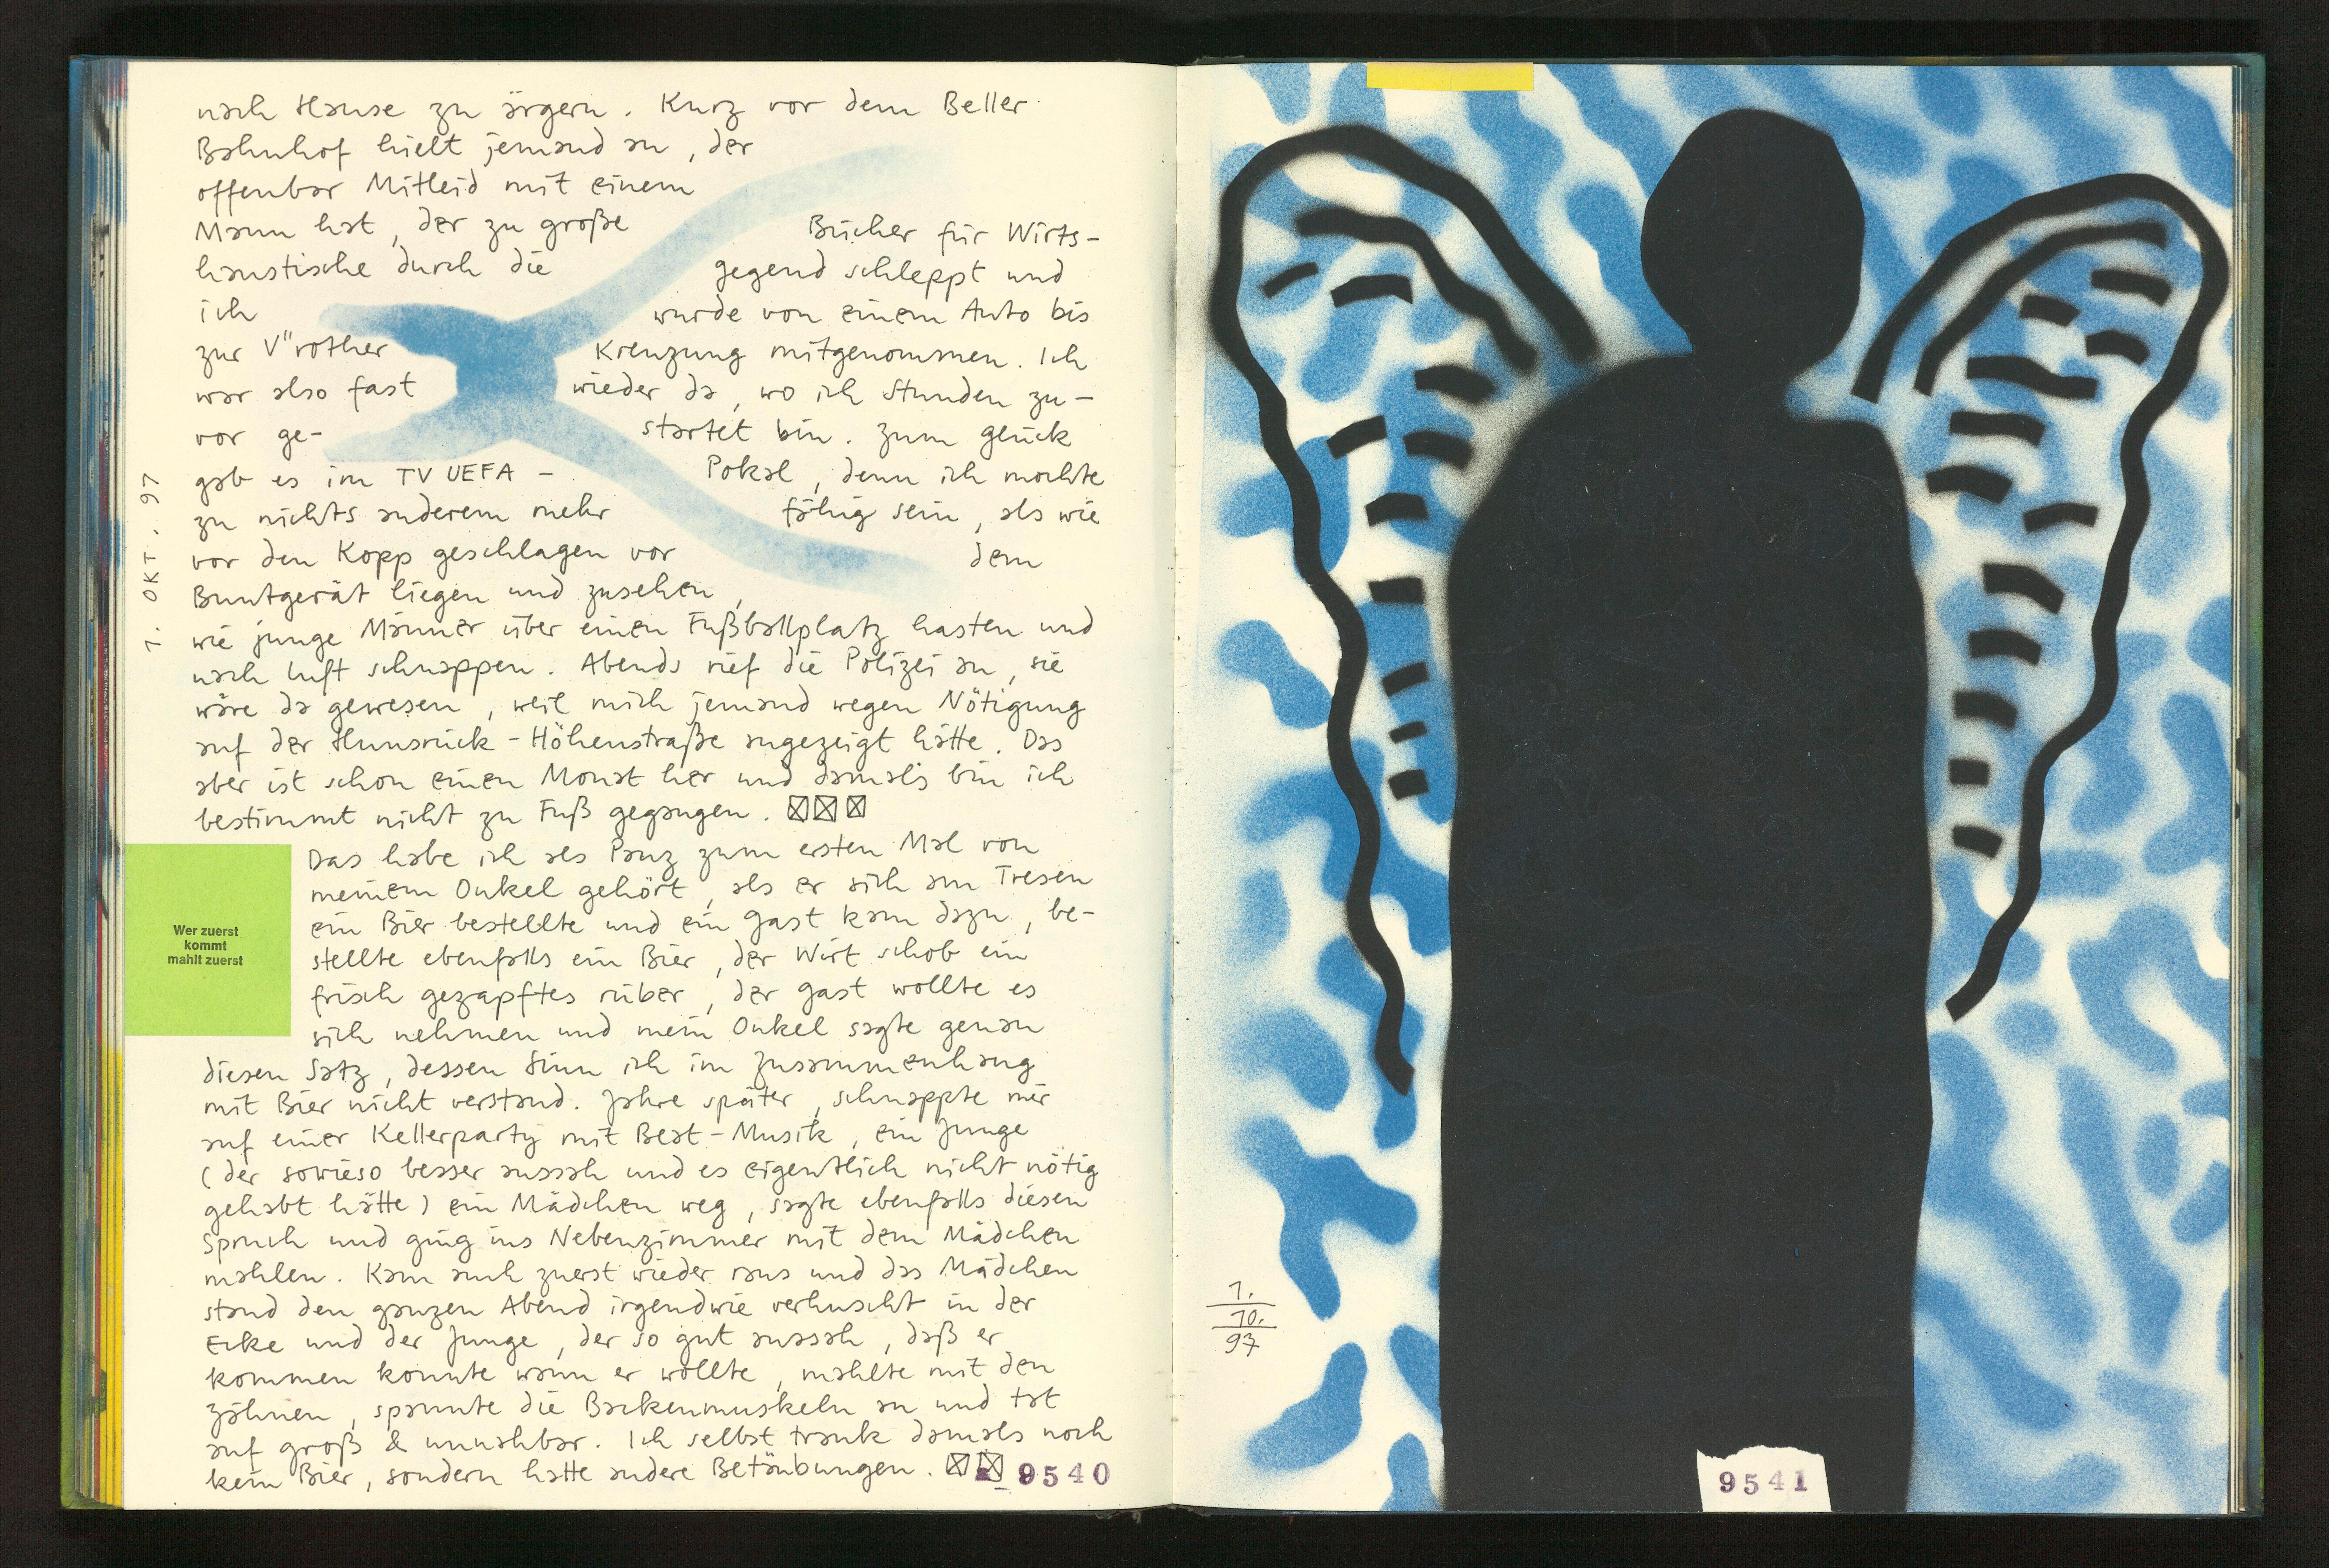 nach Hause zu ärgern. Kurz vor dem Beller
Bahnhof hielt jemand an, der
offenbar Mitleid mit einem
Mann hat, der zu große Bücher für Wirts-
haustische durch die gegend schleppt und
ich wurde von einem Auto bis
zur V"rother Kreuzung mitgenommen. Ich
war also fast wieder da, wo ich Stunden zu-
vor ge- startet bin. Zum glück
gab es im TV UEFA - Pokal, denn ich mochte
zu nichts anderem mehr fähig sein, als wie
vor den Kopp geschlagen vor dem
Buntgerät liegen und zusehen,
wie junge Männer über einen Fußballplatz hasten und
nach luft schnappen. Abends rief die Polizei an, sie
wäre da gewesen, weil mich jemand wegen Nötigung
auf der Hunsrück-Höhenstraße angezeigt hätte. Das
aber ist schon einen Monat her und damals bin ich
bestimmt nicht zu Fuß gegangen.
1. OKT. 97
Wer zuerst
kommt
mahlt zuerst
Das habe ich als Panz zum ersten Mal von
meinem Onkel gehört, als er sich am Tresen
ein Bier bestellte und ein gast kam dazu, be-
stellte ebenfalls ein Bier, der Wirt schob ein
frisch gezapftes rüber, der gast wollte es
sich nehmen und mein Onkel sagte genau
diesen Satz, dessen Sinn ich im Zusammenhang
mit Bier nicht verstand. Jahre später, schnappte mir
auf einer Kellerparty mit Beat-Musik, ein Junge
(der sowieso besser aussah und es eigentlich nicht nötig
gehabt hätte) ein Mädchen weg, sagte ebenfalls diesen
Spruch und ging ins Nebenzimmer mit dem Mädchen
mahlen. Kam auch zuerst wieder raus und das Mädchen
stand den ganzen Abend irgendwie verhuscht in der
Ecke und der Junge, der so gut aussah, daß er
kommen konnte wann er wollte, mahlte mit den
zähnen, spannte die Backenmuskeln an und tat
auf groß & unnahbar. Ich selbst trank damals noch
kein Bier, sondern hatte andere Betäubungen.
9540
1.
10.
97
9541